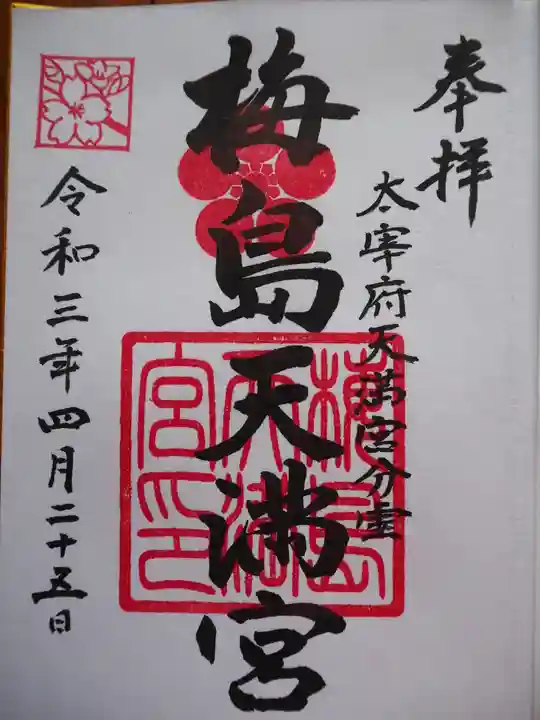 奉拝
太宰府天満宮分霊
梅島天満宮
梅島天満宮印
令和三年四月二十五日